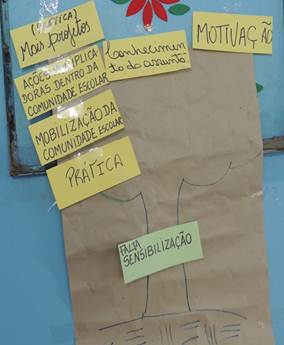 (PRÁTICA)
Mais projetos
Conhecimen
to do assunto
MOTIVAÇÃO
AÇÕES MULTIPLICA
DORAS DENTRO DA
COMUNIDADE ESCOLAR
MOBILIZAÇÃO DA
COMUNIDADE ESCOLAR
PRÁTICA
FALTA
SENSIBILIZAÇÃO